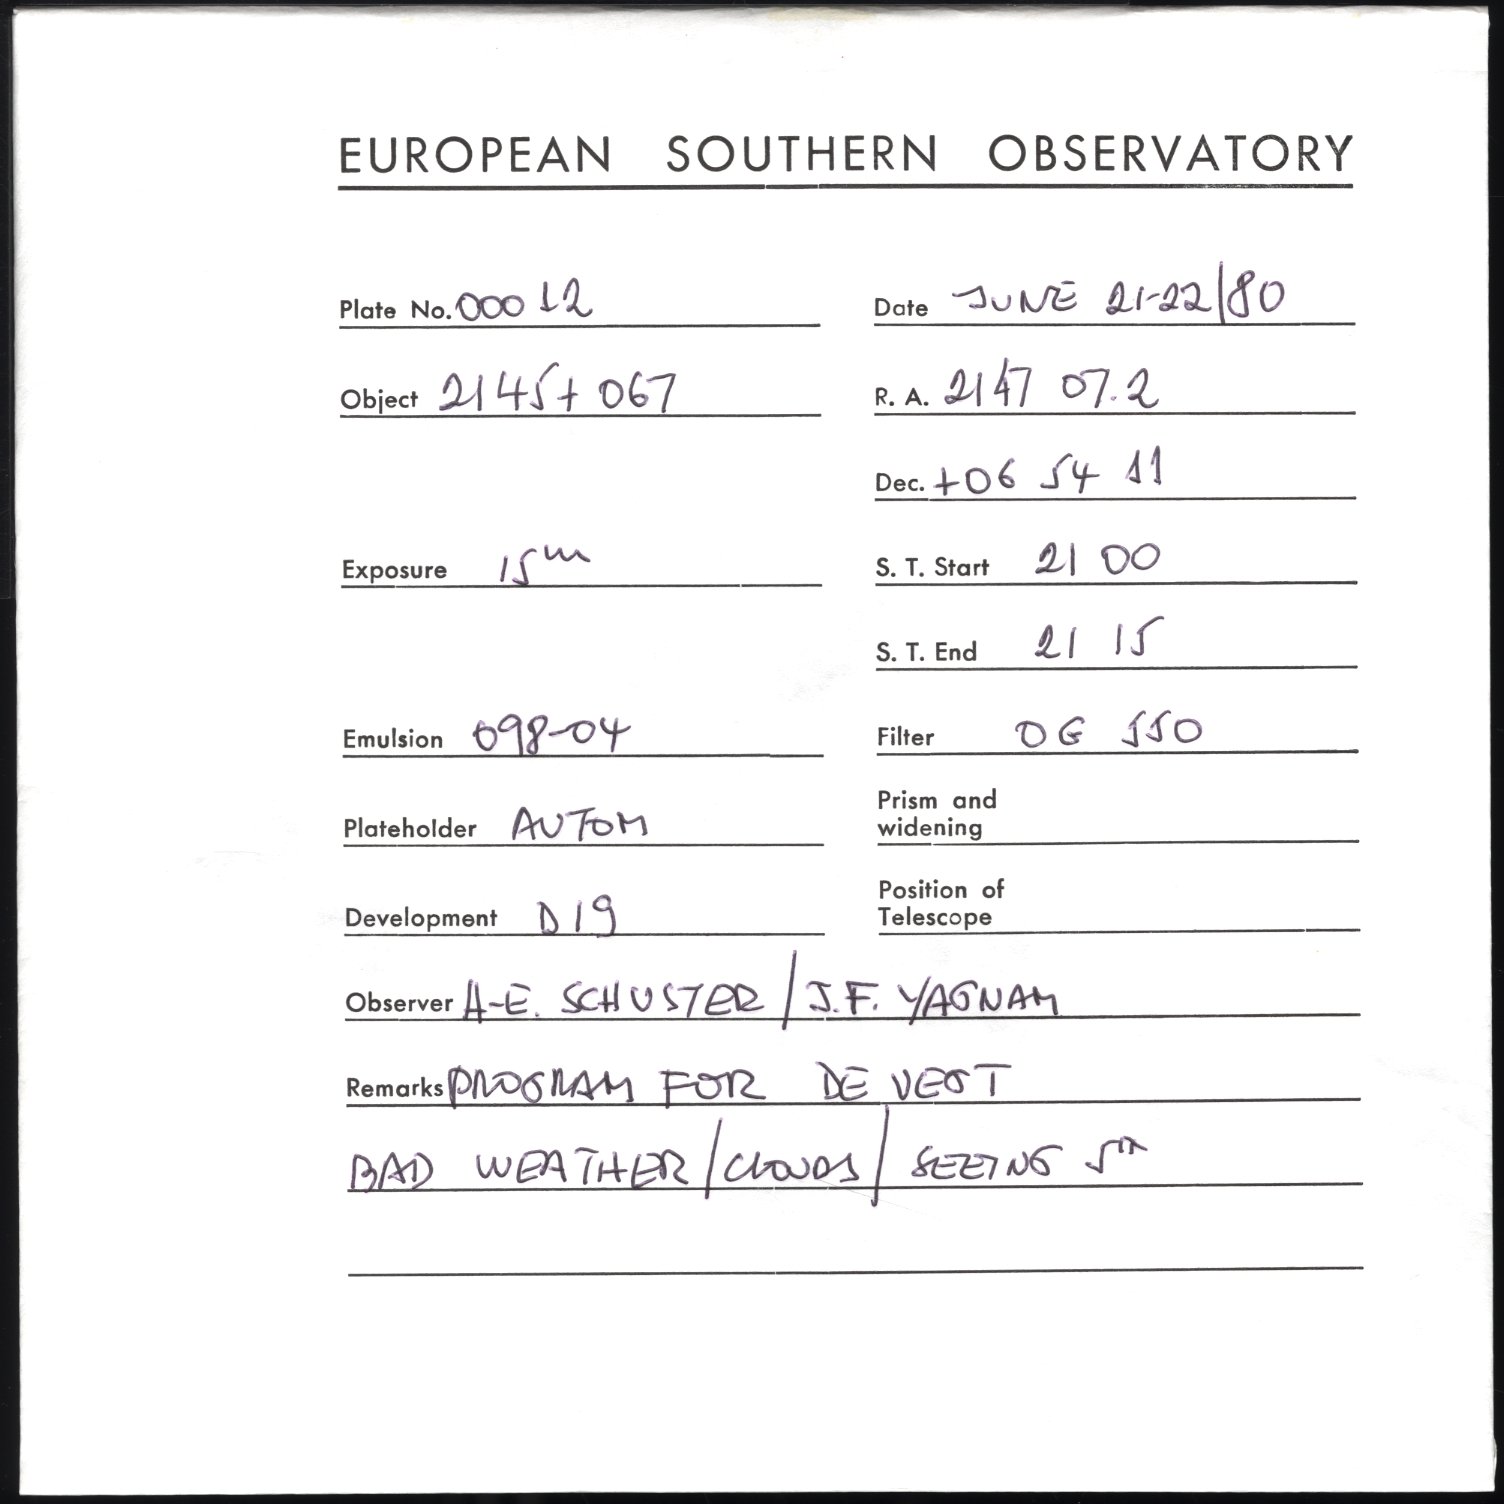 EUROPEAN SOUTHERN OBSERVATORY
Plate No. 00012
Date JUNE 21-22/80
Object 2145+067
R. A. 2147 07.2
Dec. +06 54 11
Exposure 15m
S. T. Start 21 00
S. T. End 21 15
Emulsion 098-04
Filter OG 550
Plateholder AUTOM
Prism and
widening
Development D19
Position of
Telescope
Observer H-E. SCHUSTER / J.F. YAGNAM
Remarks PROGRAM FOR DE VEGT
BAD WEATHER / CLOUDS / SEEING 5"